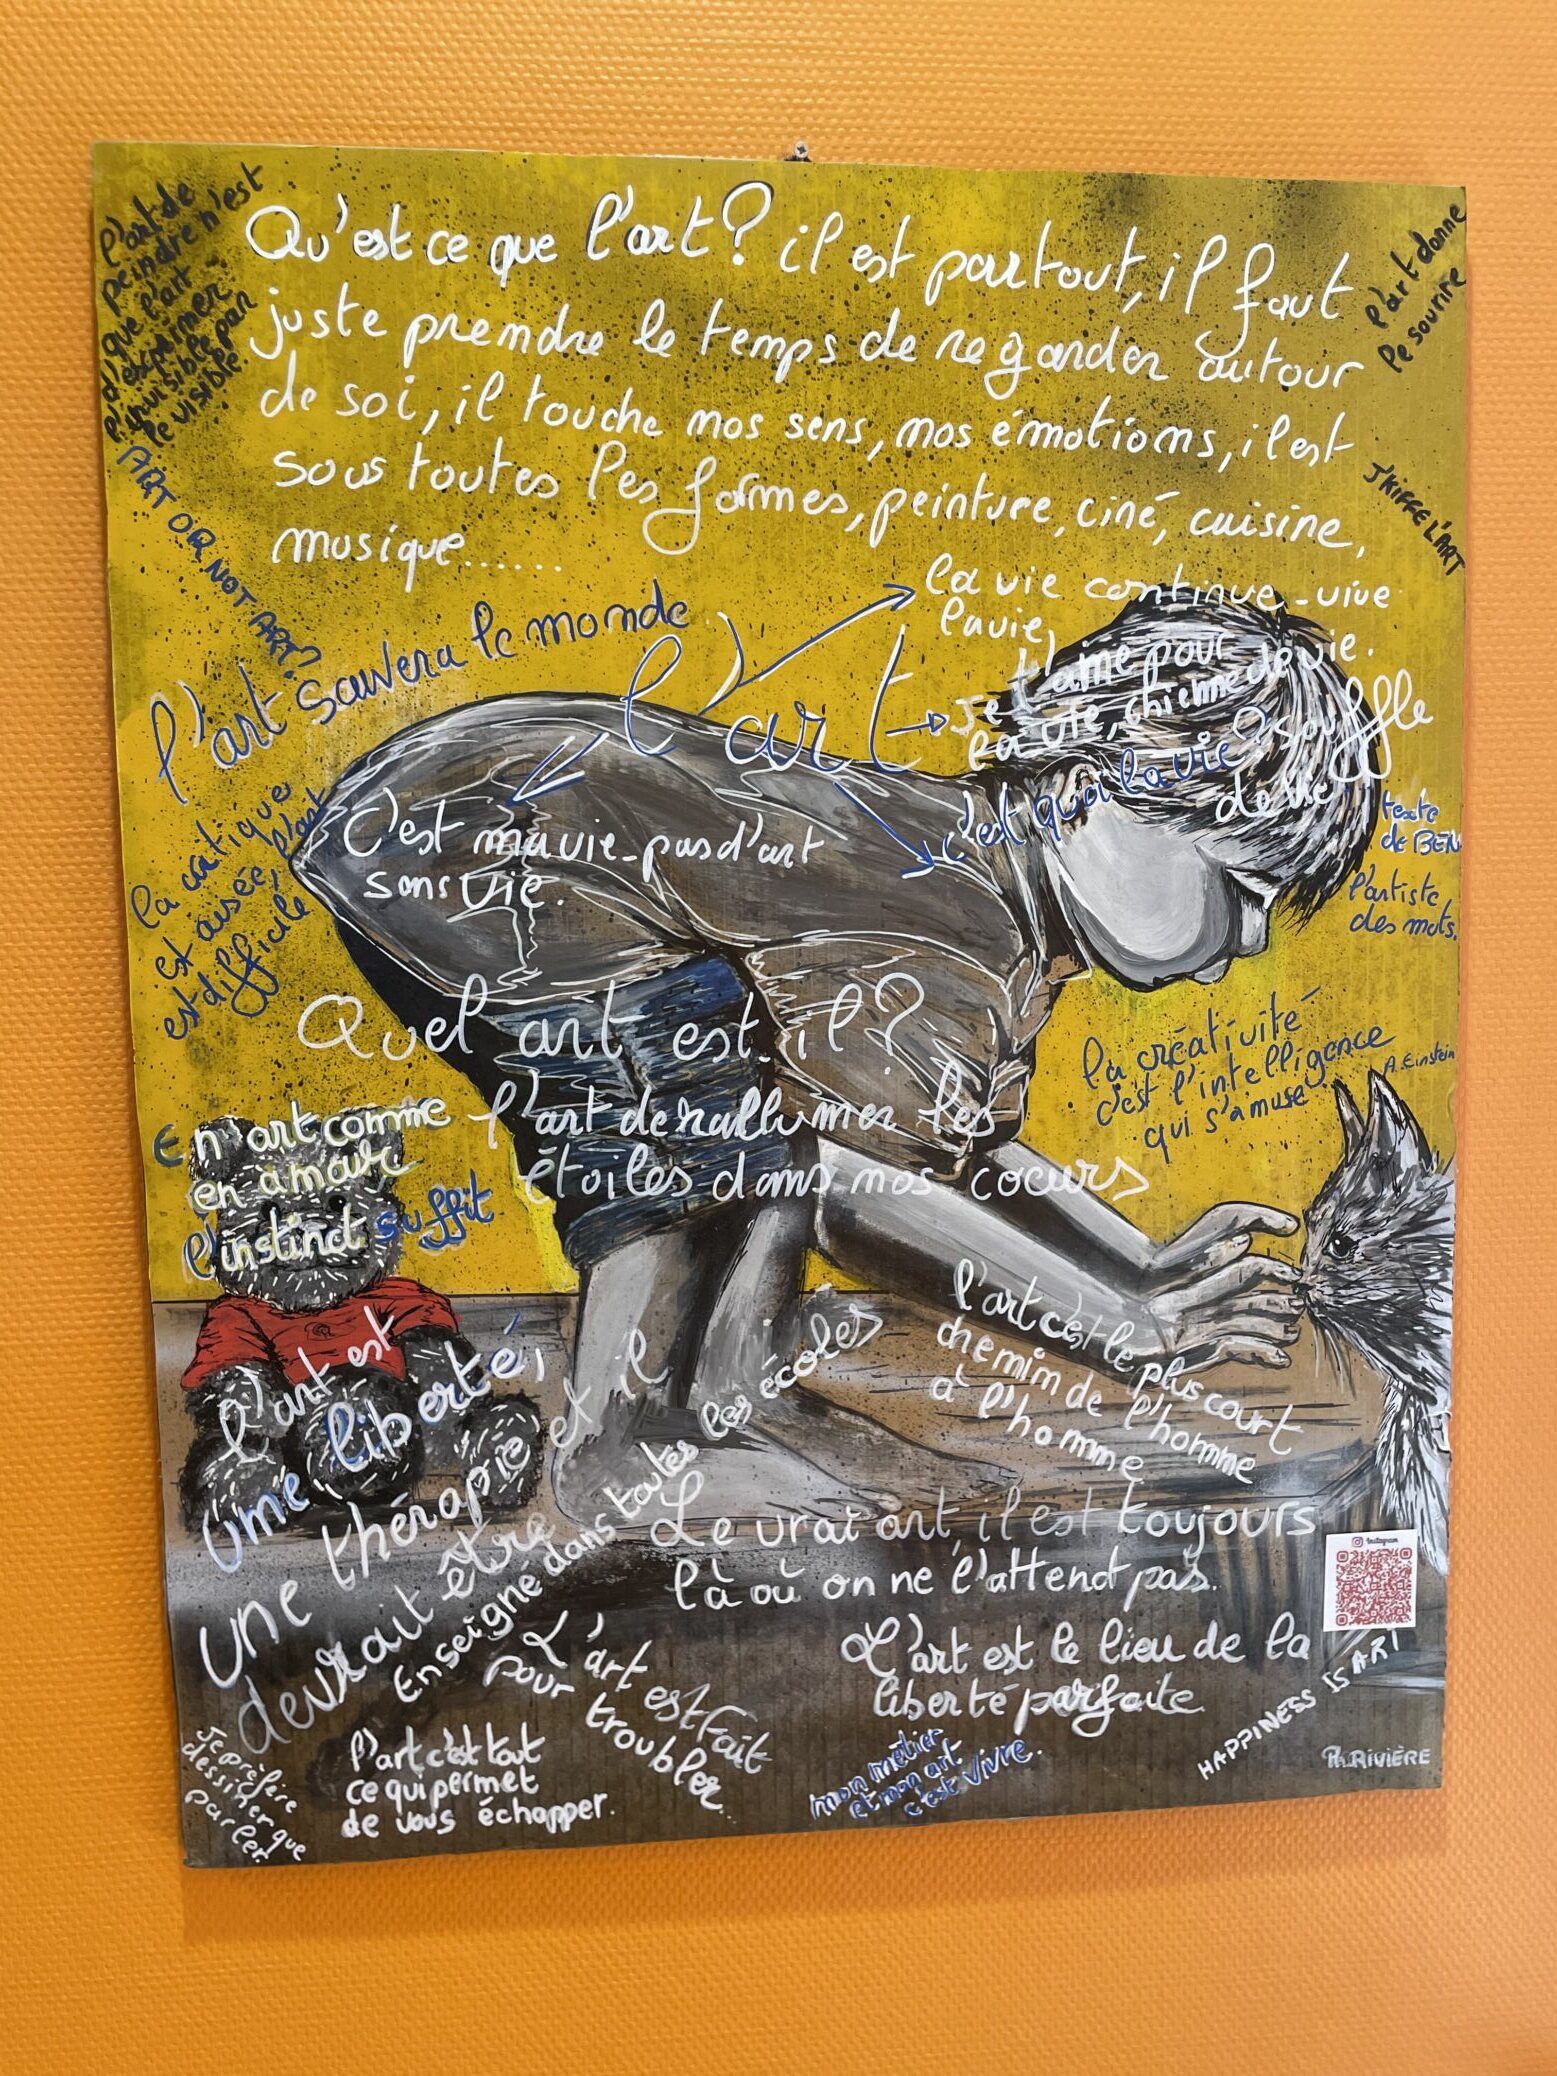 l'art de
peindre n'est
que l'art
d'exprimer
l'invisible par
le visible
Qu'est ce que l'art? il est partout, il faut
juste prendre le temps de regarder autour
de soi, il touche nos sens, nos émotions, il est
sous toutes les formes, peinture, ciné, cuisine,
musique......
l'art donne
le sourire
J'KIFFE L'ART
ART OR NOT ART?
l'art sauvera le monde
l'art
la vie continue - vive
la vie,
je t'aime pour
la vie, chienne de vie.
c'est quoi la vie? souffle
de vie
texte
de BEN
l'artiste
des mots.
C'est ma vie - pas d'art
sans vie.
la critique
est aisée, l'art
est difficile
Quel art est-il?
l'art de rallumer les
étoiles dans nos coeurs
la créativité
c'est l'intelligence
qui s'amuse
A. Einstein
En art comme
en amour
l'instinct suffit
l'art est
une liberté,
une thérapie et il
devrait être
Enseigné dans toutes les écoles
l'art c'est le plus court
chemin de l'homme
à l'homme
Le vrai art, il est toujours
là où on ne l'attend pas.
Instagram
L'art est fait
pour troubler...
L'art est le lieu de la
liberté parfaite
HAPPINESS IS ART
Je préfère
dessiner que
parler.
l'art c'est tout
ce qui permet
de vous échapper.
mon métier
et mon art
c'est vivre.
Ph.RIVIÈRE